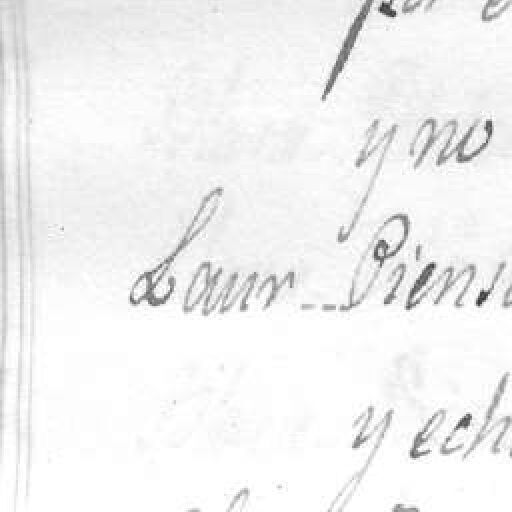 y no
Laur Piens
y ech